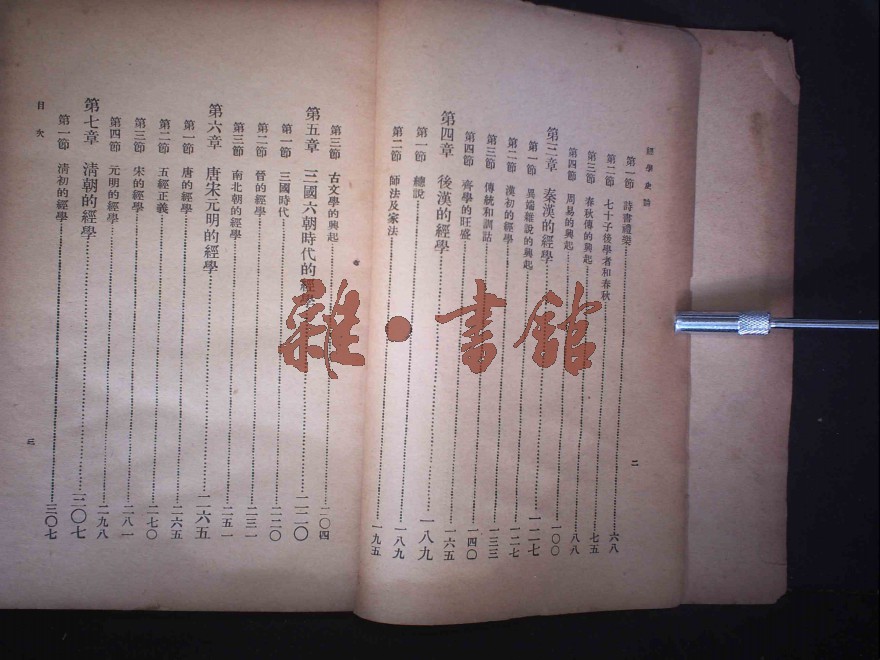 經學史論
第一節 詩書禮樂……六八
第二節 七十子後學者和春秋……七五
第三節 春秋傳的興起……八八
第四節 周易的興起……一〇〇
第三章 秦漢的經學……一一七
第一節 異端雜說的興起……一一七
第二節 漢初的經學……一三三
第三節 傳統和訓詁……一四〇
第四節 齊學的旺盛……一六五
第四章 後漢的經學……一八九
第一節 總說……一八九
第二節 師法及家法……一九五
二
第三節 古文學的興起……二〇四
第五章 三國六朝時代的經學……二二〇
第一節 三國時代……二二〇
第二節 晉的經學……二三一
第三節 南北朝的經學……二五一
第六章 唐宋元明的經學……二六五
第一節 唐的經學……二六五
第二節 五經正義……二七〇
第三節 宋的經學……二八一
第四節 元明的經學……二九八
第七章 清朝的經學……三〇七
第一節 清初的經學……三〇七
目次
三
雜·書館